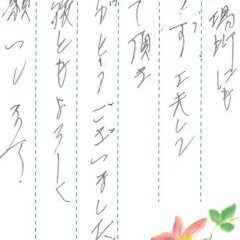 場所にも
ず、工夫して
て頂き
がとうございました
後ともよろしく
願いします。